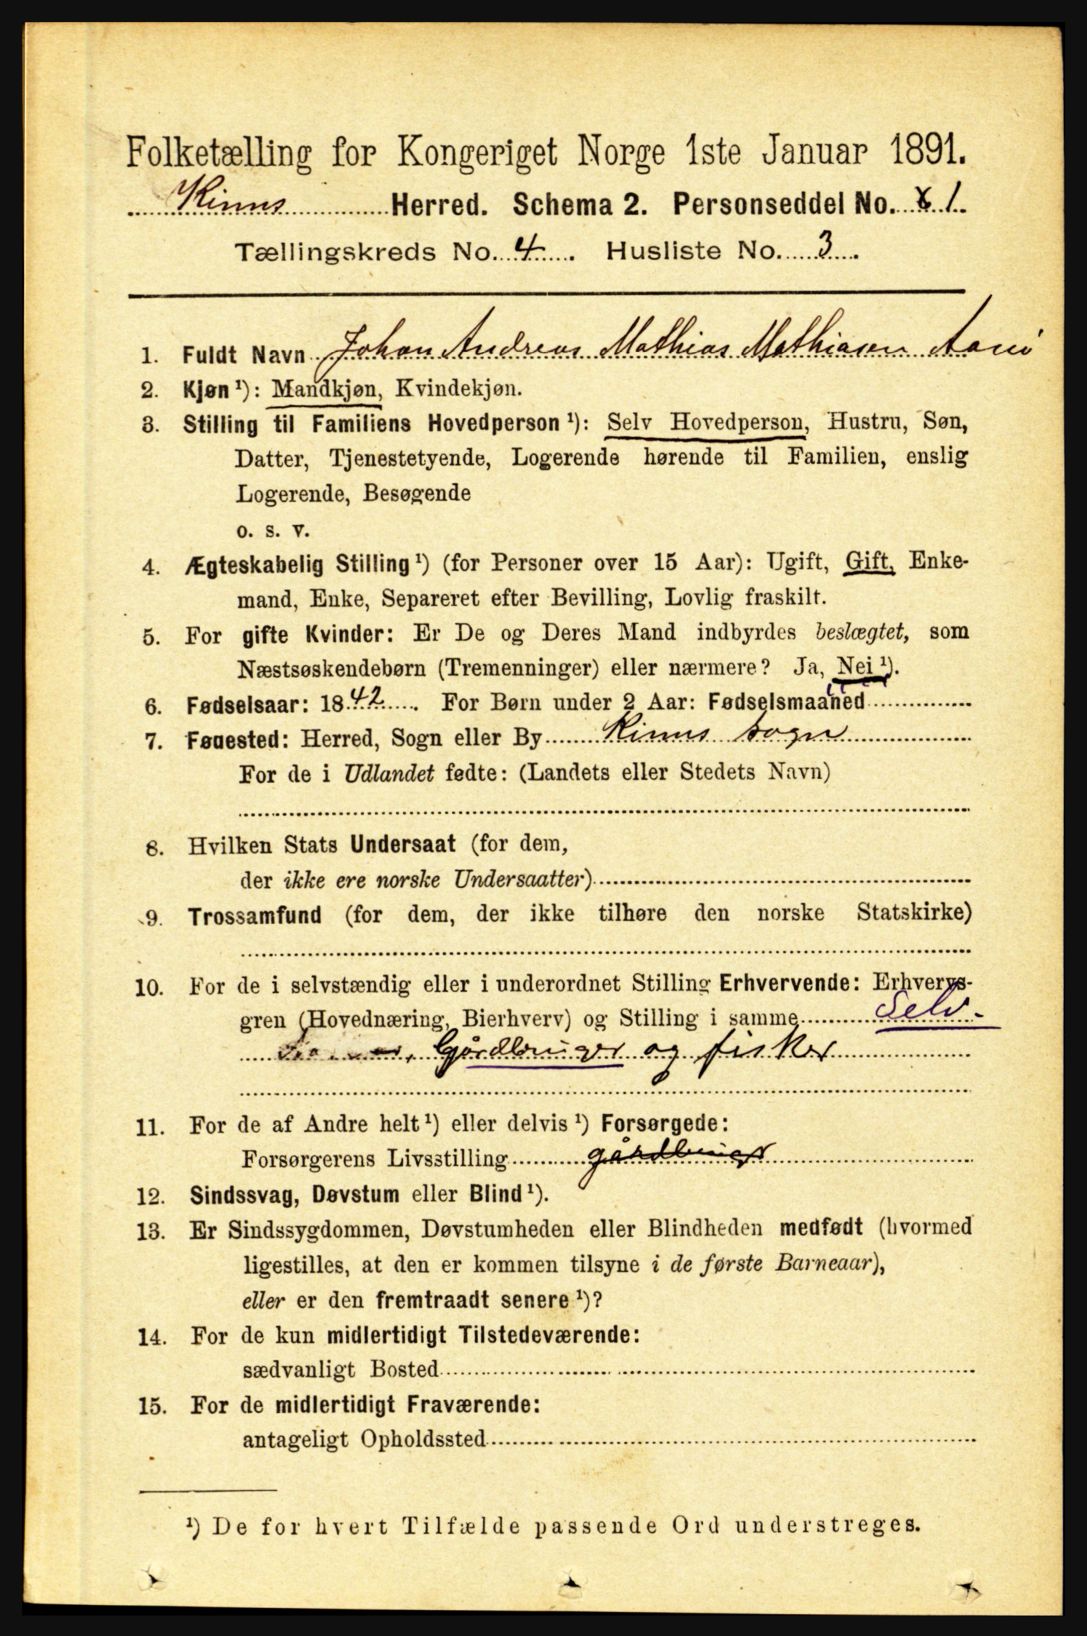 Folketælling for Kongeriget Norge 1ste Januar 1891.
Kinns Herred. Schema 2. Personseddel No. 1.
Tællingskreds No. 4. Husliste No. 3.
1. Fuldt Navn Johan Andreas Mathias Mathiasen
2. Kjøn ¹): Mandkjøn, Kvindekjøn.
3. Stilling til Familiens Hovedperson ¹): Selv Hovedperson, Hustru, Søn,
Datter, Tjenestetyende, Logerende hørende til Familien, enslig
Logerende, Besøgende
o. s. v.
4. Ægteskabelig Stilling ¹) (for Personer over 15 Aar): Ugift, Gift, Enke-
mand, Enke, Separeret efter Bevilling, Lovlig fraskilt.
5. For gifte Kvinder: Er De og Deres Mand indbyrdes beslægtet, som
Næstsøskendebørn (Tremenninger) eller nærmere? Ja, Nei ¹).
6. Fødselsaar: 1842. For Børn under 2 Aar: Fødselsmaaned
7. Fødested: Herred, Sogn eller By Kinns sogn
For de i Udlandet fødte: (Landets eller Stedets Navn)
8. Hvilken Stats Undersaat (for dem,
der ikke ere norske Undersaatter)
9. Trossamfund (for dem, der ikke tilhøre den norske Statskirke)
10. For de i selvstændig eller i underordnet Stilling Erhvervende: Erhvervs-
gren (Hovednæring, Bierhverv) og Stilling i samme Selv.
Gårdbruger og fisker
11. For de af Andre helt ¹) eller delvis ¹) Forsørgede:
Forsørgerens Livsstilling gårdbruger
12. Sindssvag, Døvstum eller Blind ¹).
13. Er Sindssygdommen, Døvstumheden eller Blindheden medfødt (hvormed
ligestilles, at den er kommen tilsyne i de første Barneaar),
eller er den fremtraadt senere ¹)?
14. For de kun midlertidigt Tilstedeværende:
sædvanligt Bosted
15. For de midlertidigt Fraværende:
antageligt Opholdssted
¹) De for hvert Tilfælde passende Ord understreges.